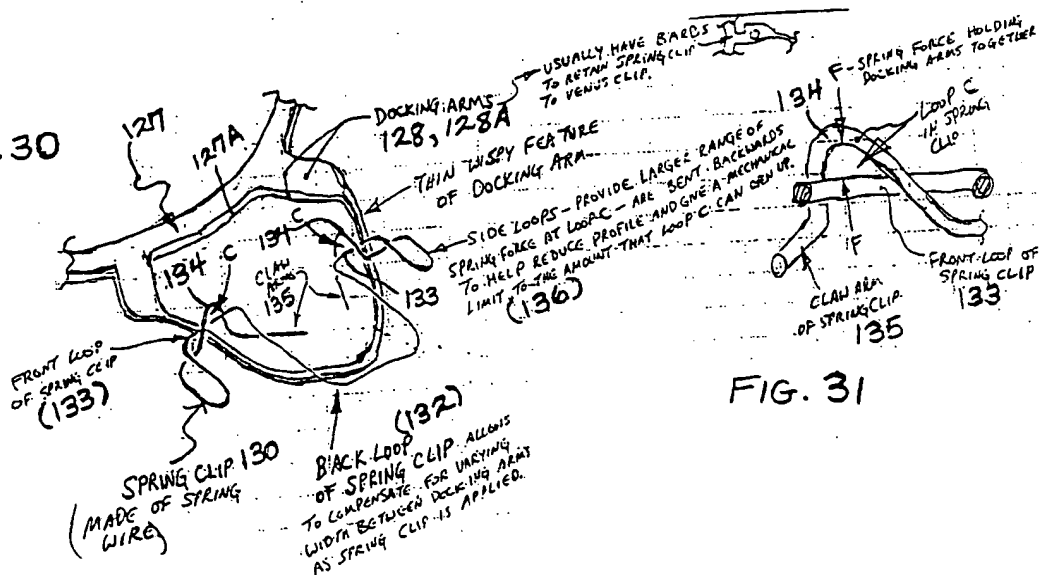 .30
127
127A
DOCKING ARMS
128, 128A
USUALLY HAVE BARBS
TO RETAIN SPRING CLIP
TO VENUS CLIP.
THIN WISPY FEATURE
OF DOCKING ARM
SIDE LOOPS - PROVIDE LARGER RANGE OF
SPRING FORCE AT LOOP C - ARE BENT BACKWARDS
TO HELP REDUCE PROFILE AND GIVE A MECHANICAL
LIMIT TO THE AMOUNT THAT LOOP C CAN OPEN UP.
(136)
134 C
134 C
CLAW
ARMS
135
133
FRONT LOOP
OF SPRING CLIP
(133)
SPRING CLIP 130
(MADE OF SPRING
WIRE)
(132)
BACK LOOP
OF SPRING CLIP ALLOWS
TO COMPENSATE FOR VARYING
WIDTH BETWEEN DOCKING ARMS
AS SPRING CLIP IS APPLIED.
F - SPRING FORCE HOLDING
DOCKING ARMS TOGETHER
134
LOOP C
IN SPRING
CLIP
F
CLAW ARM
OF SPRING CLIP
135
FRONT LOOP OF
SPRING CLIP
133
FIG. 31